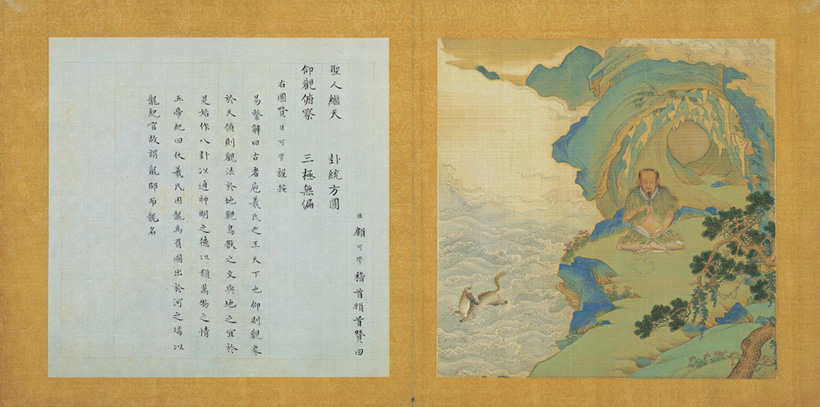 臣顧可學稽首頓首贊曰
聖人繼天 卦統方圓
仰觀俯察 三極無偏
右圖贊臣可學謹按
易繫辭曰古者庖羲氏之王天下也仰則觀象
於天俯則觀法於地觀鳥獸之文與地之宜於
是始作八卦以通神明之德以類萬物之情
五帝紀曰伏羲氏因龍馬負圖出於河之瑞以
龍紀官故謂龍師而龍名